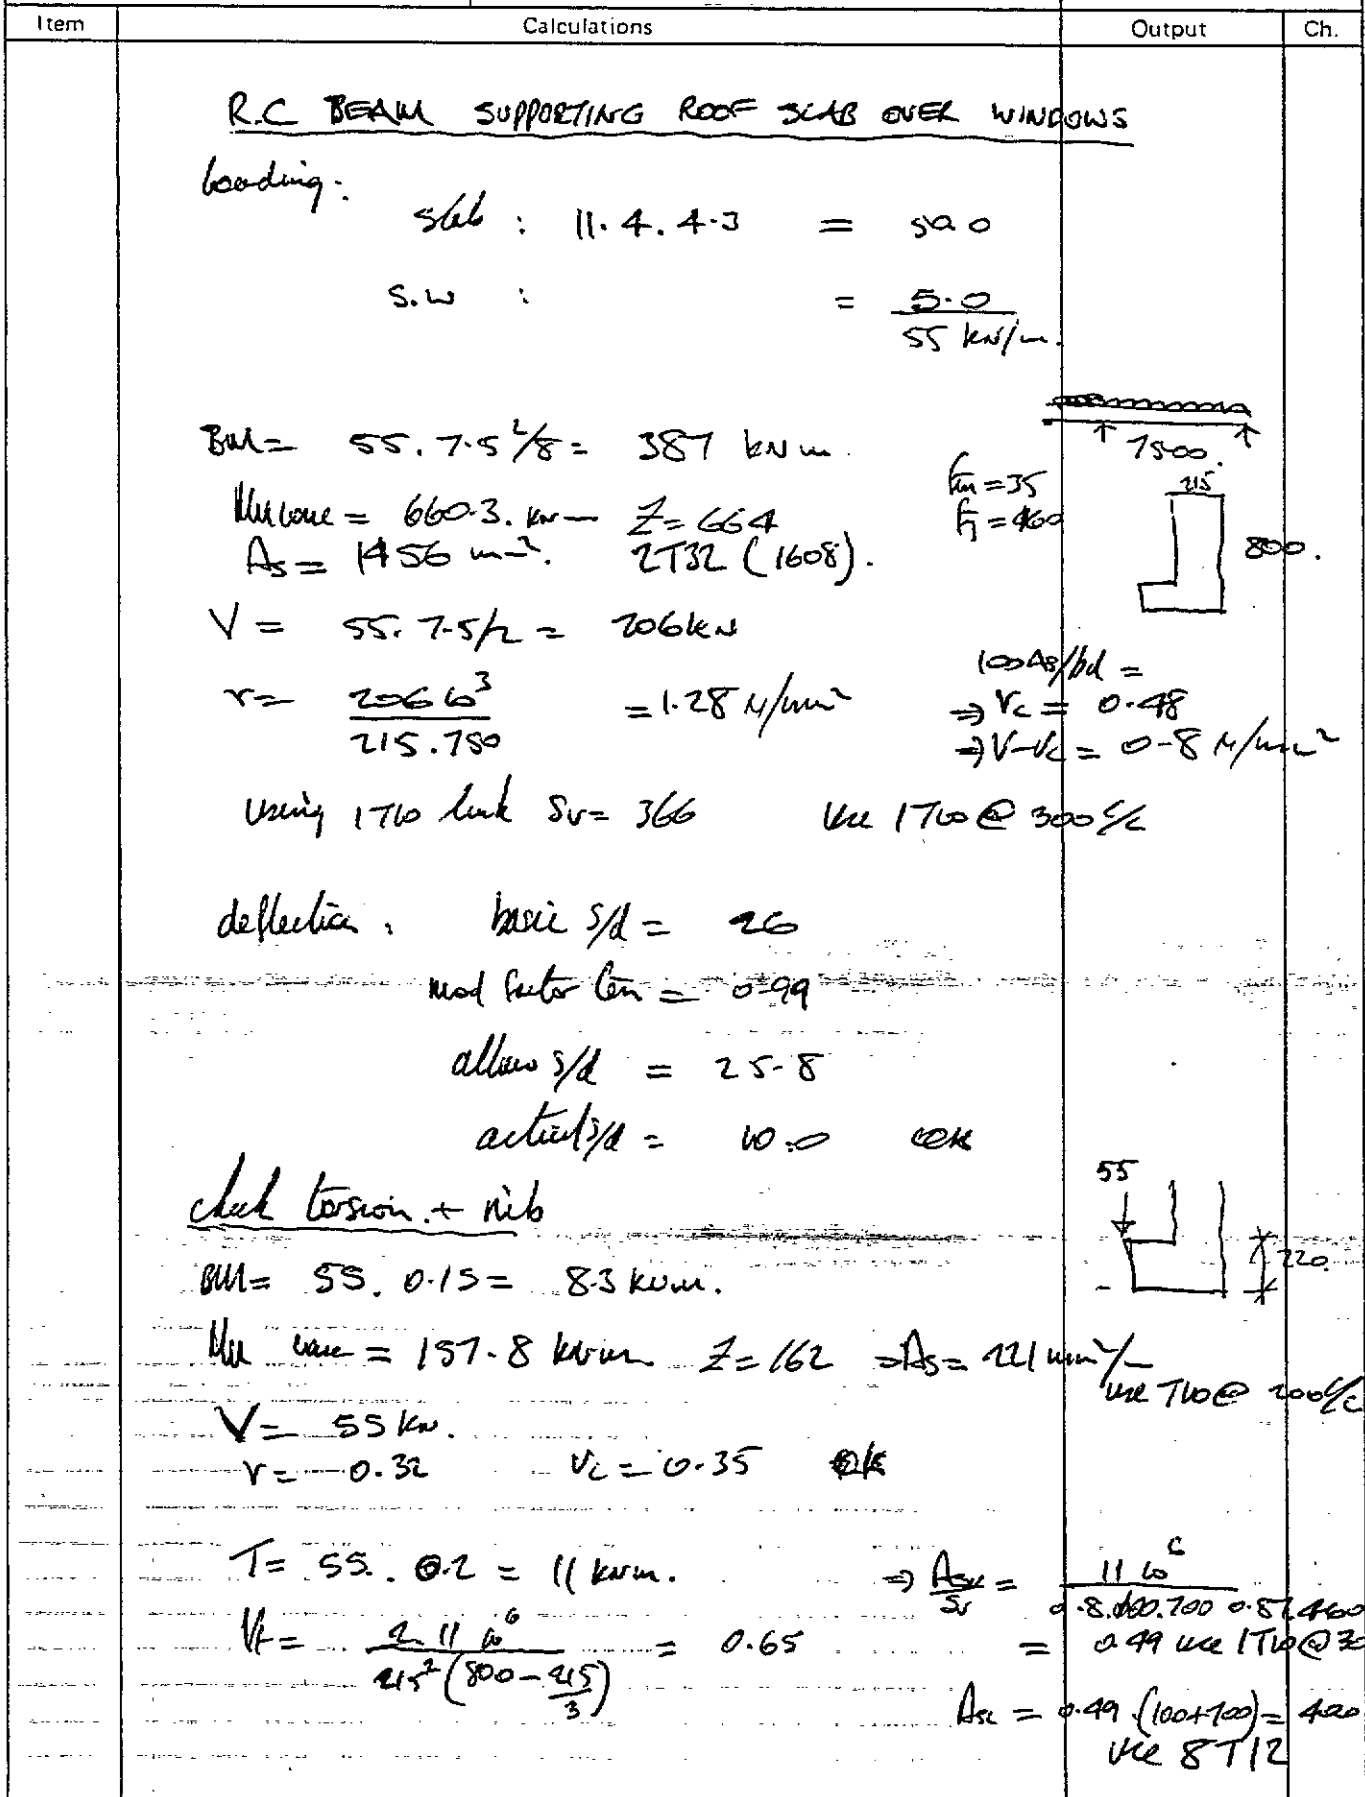 Item Calculations Output Ch.
R.C BEAM SUPPORTING ROOF SLAB OVER WINDOWS
Loading:
slab : 11.4. 4.3 = 50.0
S.W : = 5.0
55 kN/m.
BM = 55. 7.5²/8 = 387 kNm.
7500.
Mu conc = 660.3. kNm Z = 664
fcu = 35
fy = 460
215
800.
As = 1456 mm². 2T32 (1608).
V = 55. 7.5/2 = 206 kN
v = 206 10³ / 215.750 = 1.28 N/mm²
100As/bd =
⇒ vc = 0.48
⇒ V-vc = 0.8 N/mm²
Using 1T10 link Sv = 366 Use 1T10 @ 300 c/c
deflection : basic s/d = 26
mod factor ten = 0.99
allow s/d = 25.8
actual s/d = 10.0 OK
check torsion + nib
55
220.
BM = 55. 0.15 = 8.3 kNm.
Mu conc = 157.8 kNm Z = 162 ⇒ As = 221 mm²/m
use T10 @ 200 c/c
V = 55 kN.
v = 0.32 vc = 0.35 OK
T = 55. 0.2 = 11 kNm.
⇒ Asv/Sv = 11 10⁶ / 0.8.100.700 0.87.460
Vt = 2 11 10⁶ / 215² (800 - 215/3) = 0.65
= 0.49 use 1T10 @ 30
Asc = 0.49 (100+700) = 400
Use 8T12